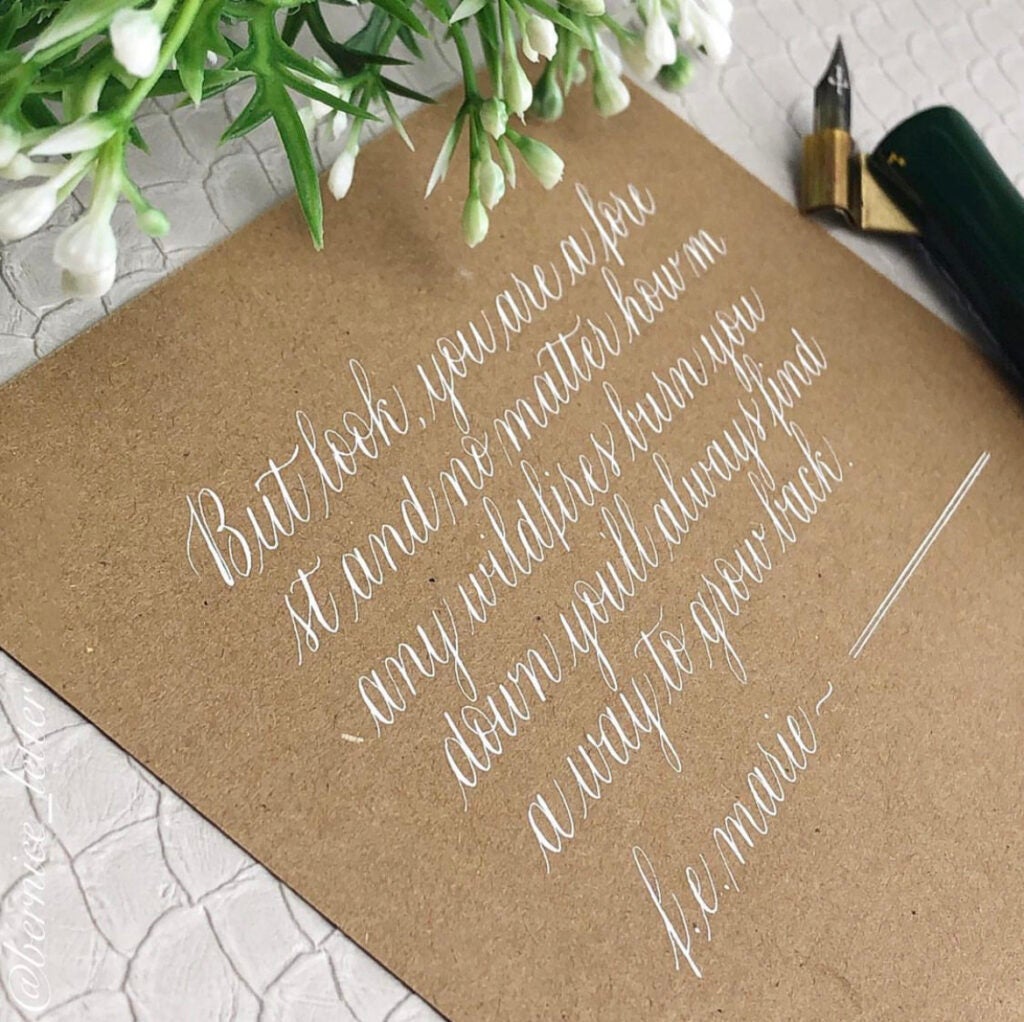 But look, you are a fore
st and no matter how m
any wildfires burn you
down you'll always find
a way to grow back.
f.e. marie ~